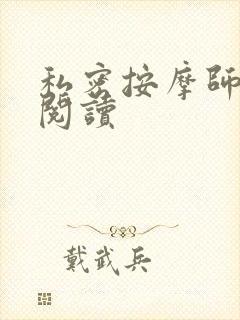 私密按摩師
閱讀
戴武兵